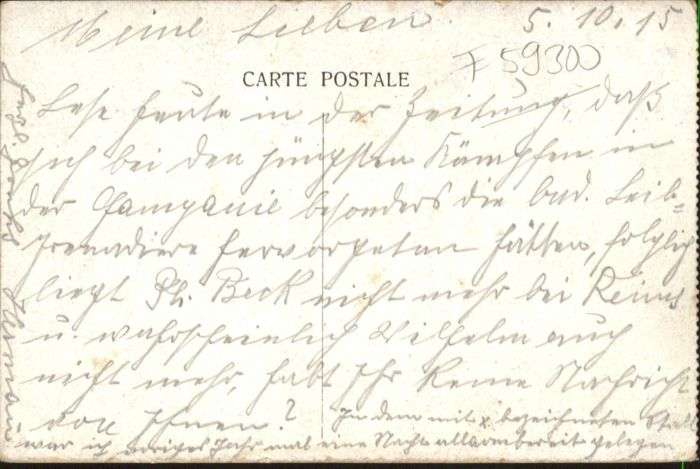 Meine Lieben. 5.10.15
F 59300
CARTE POSTALE
Lese heute in der Zeitung, daß
sich bei den jüngsten Kämpfen in
der Champanie besonders die bad. Leib=
grenadiere hervorgetan hätten, folglich
liegt Ph. Beck nicht mehr bei Reims
u. wahrscheinlich Wilhelm auch
nicht mehr, habt Ihr keine Nachricht
von Ihnen? In dem mit x bezeichneten
war ich voriges Jahr mal eine Nacht allarmbereit gelegen
Hermann